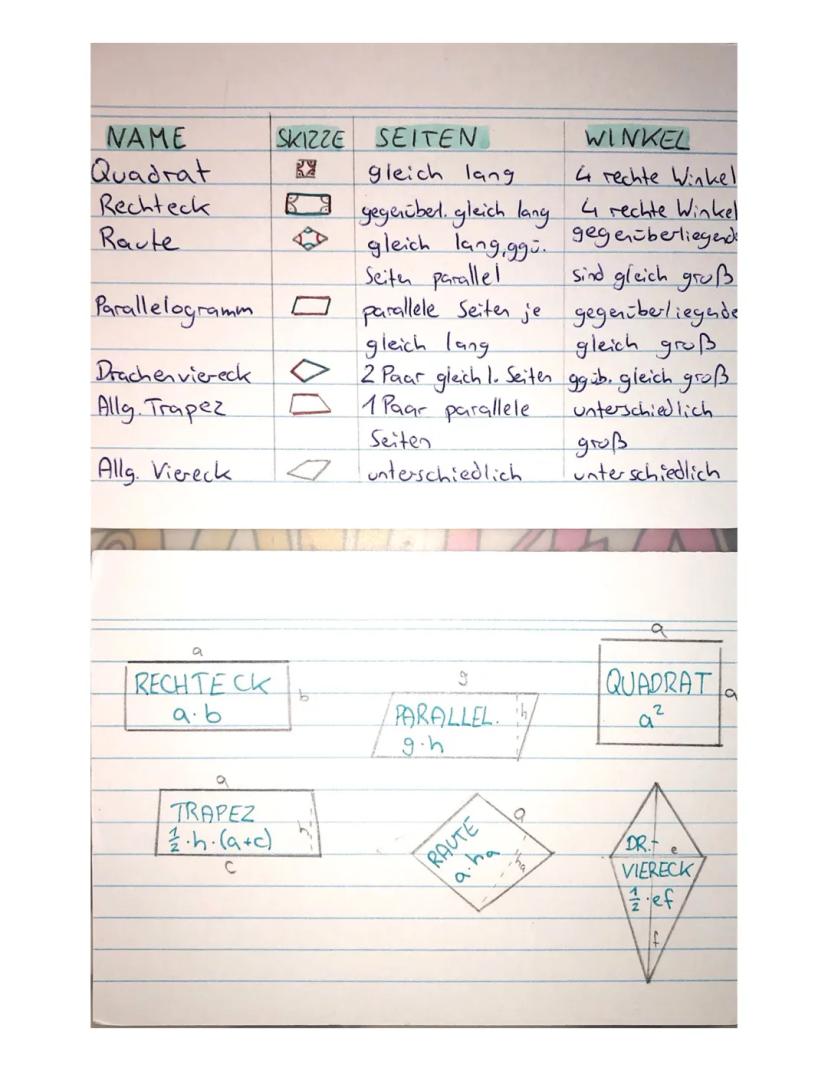 NAME SKIZZE SEITEN WINKEL
Quadrat gleich lang 4 rechte Winkel
Rechteck gegenüberl. gleich lang 4 rechte Winkel
Raute gleich lang, ggü. gegenüberliegende
Seiten parallel sind gleich groß
Parallelogramm parallele Seiten je gegenüberliegende
gleich lang gleich groß
Drachenviereck 2 Paar gleich l. Seiten ggüb. gleich groß
Allg. Trapez 1 Paar parallele unterschiedlich
Seiten groß
Allg. Viereck unterschiedlich unterschiedlich
a
RECHTECK
a·b
b
g
PARALLEL.
g·h
h
a
QUADRAT
a²
a
a
TRAPEZ
½·h·(a+c)
h
c
RAUTE
a·ha
a
ha
DR.-
VIERECK
½·ef
e
f